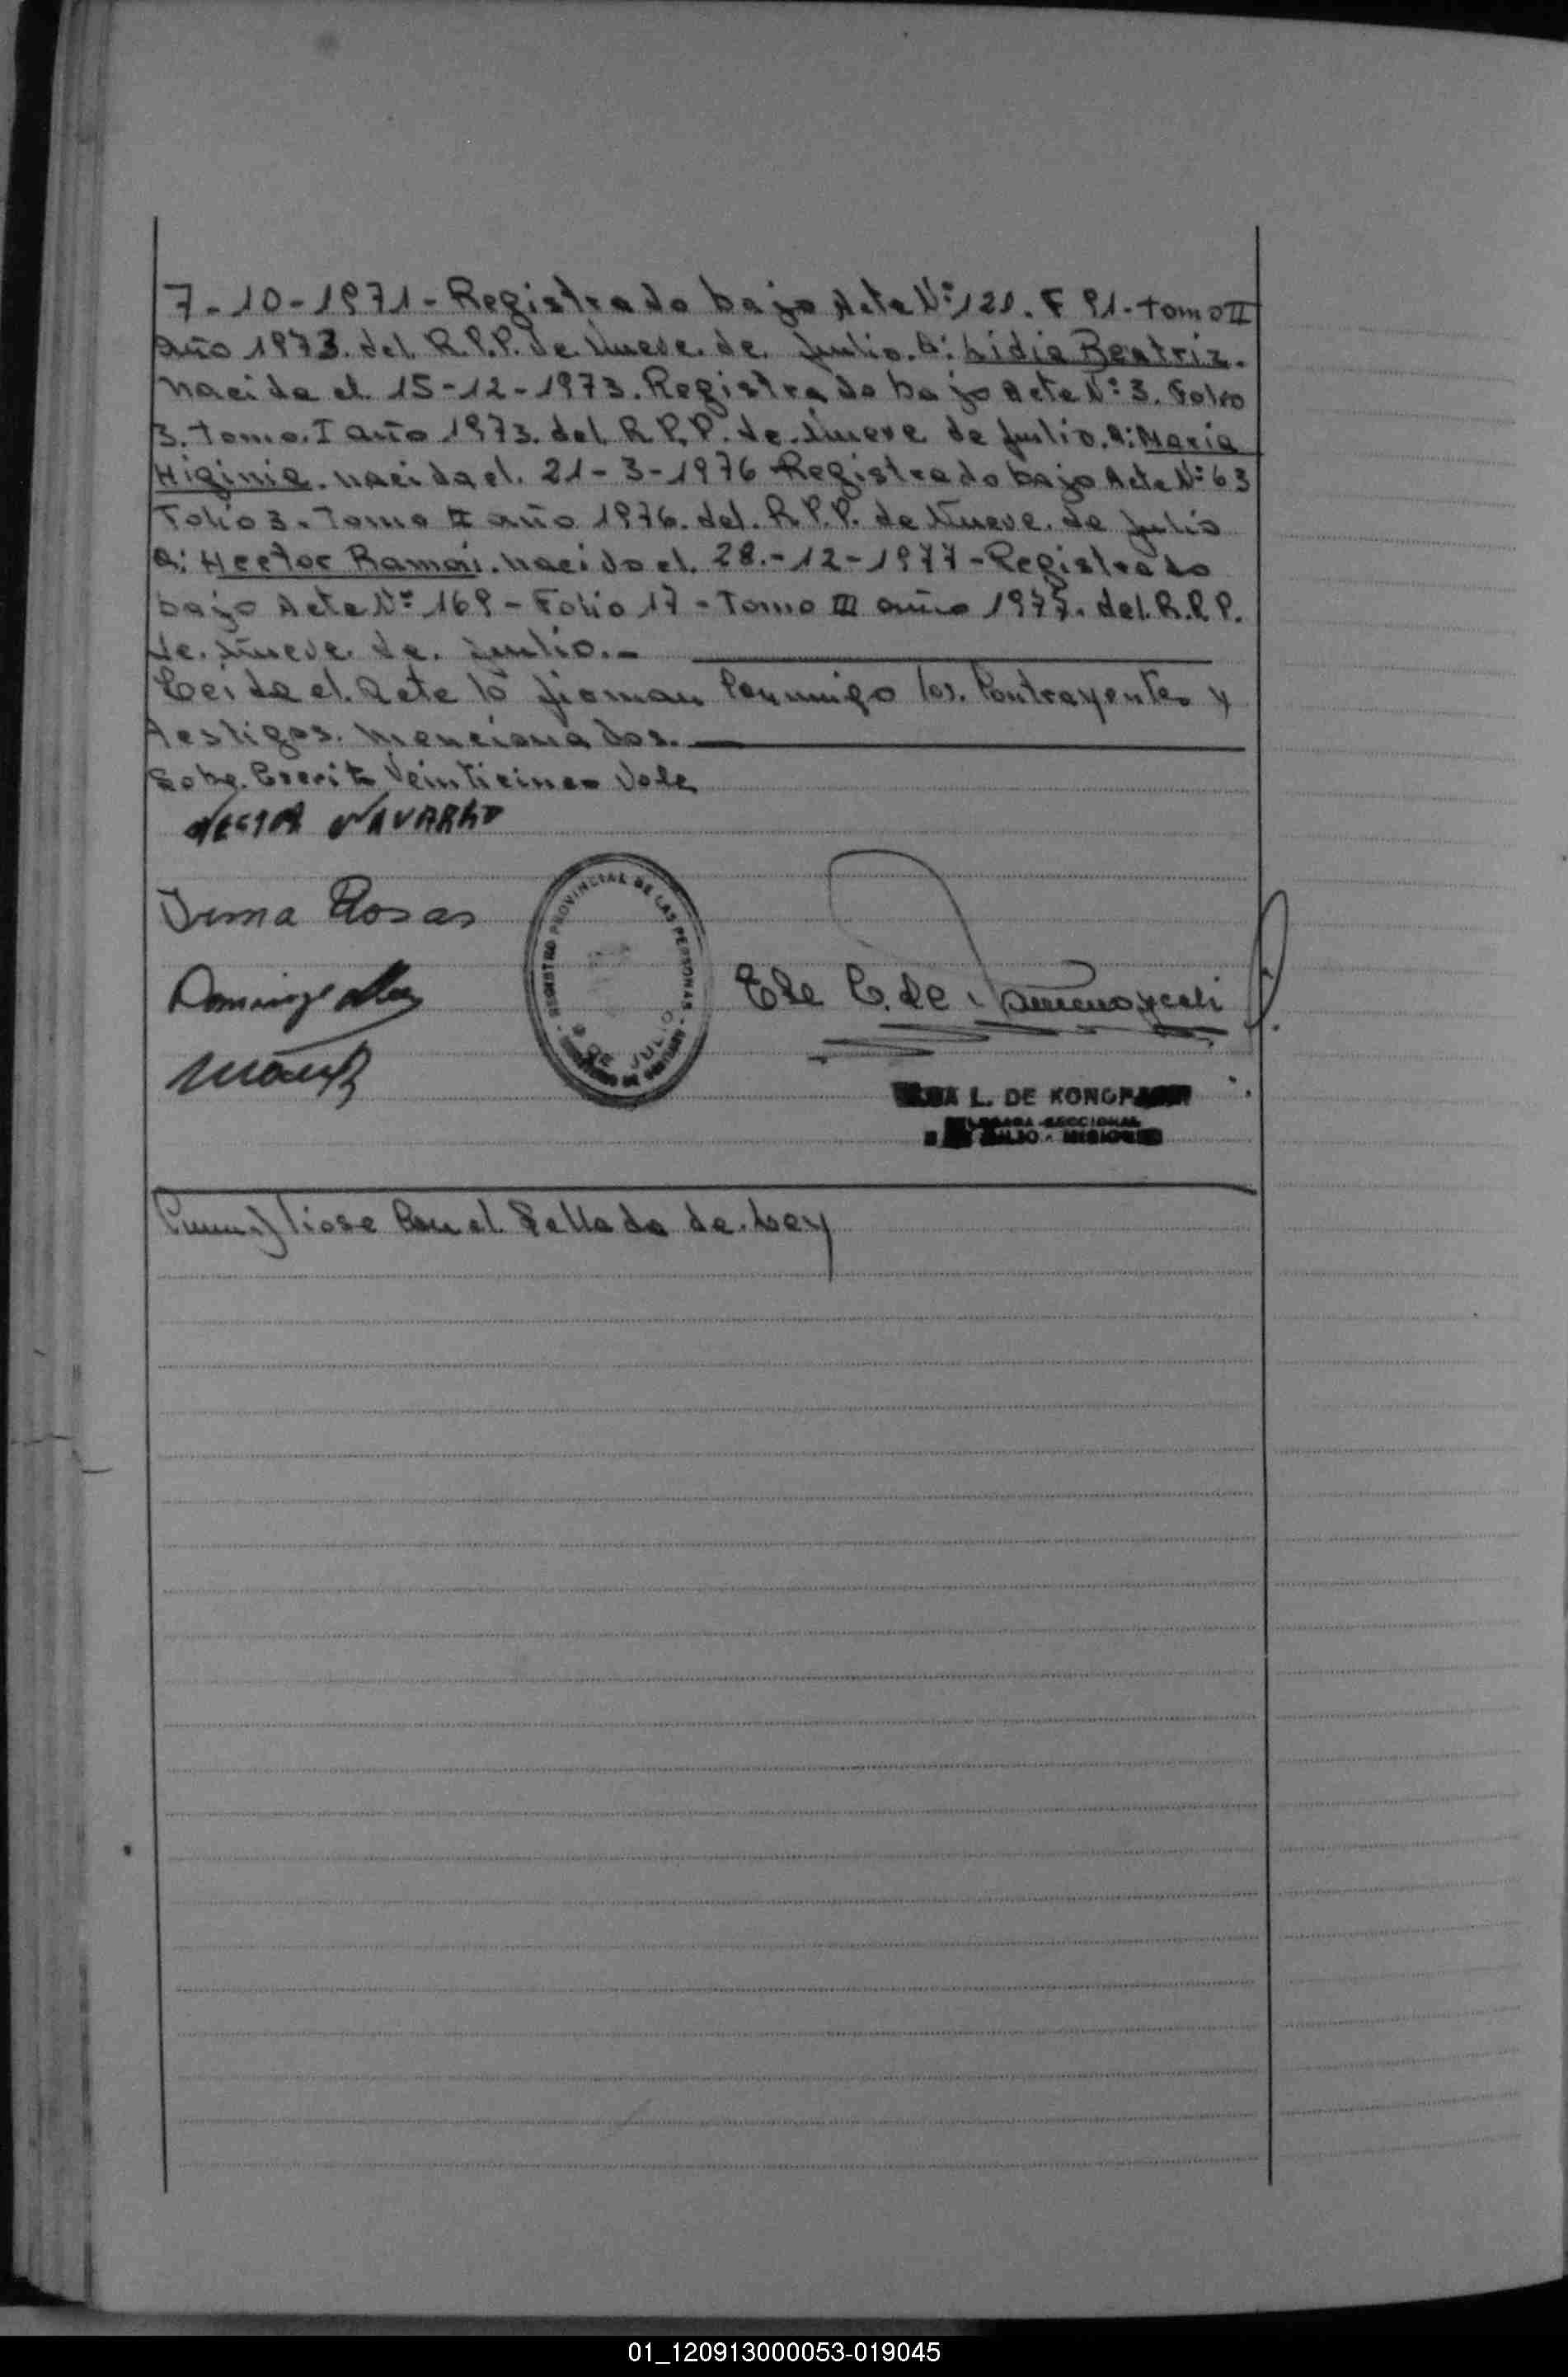 7-10-1971- Registrado bajo Acta Nº 121. F 91- tomo II
año 1973. del R.P.P. de Nueve. de Julio. a: Lidia Beatriz.
nacida el 15-12-1973. Registrado bajo Acta Nº 3. Folio
3. Tomo. I año 1973. del R.P.P. de Nueve de Julio. a: Maria
Higinia. nacida el. 21-3-1976 Registrado bajo Acta Nº 63
Folio 3. Tomo II año 1976. del. R.P.P. de Nueve. de Julio
a: Hector Ramón. nacido el. 28.-12-1977- Registrado
bajo Acta Nº 169- Folio 17- Tomo III año 1977. del. R.P.P.
de. Nueve. de. Julio.-
Leida el. Acta lo firman Conmigo los. Contrayentes y
testigos. mencionados.
Sobre. Escrito Veinticinco Vale
NAVARRO
Irma Rosas
Domingo
REGISTRO PROVINCIAL DE LAS PERSONAS
9 DE JULIO
L. DE KONOPA
SECCIONAL
JULIO - MISIONES
Cumpliose Con el Sellado de. Ley
01_120913000053-019045